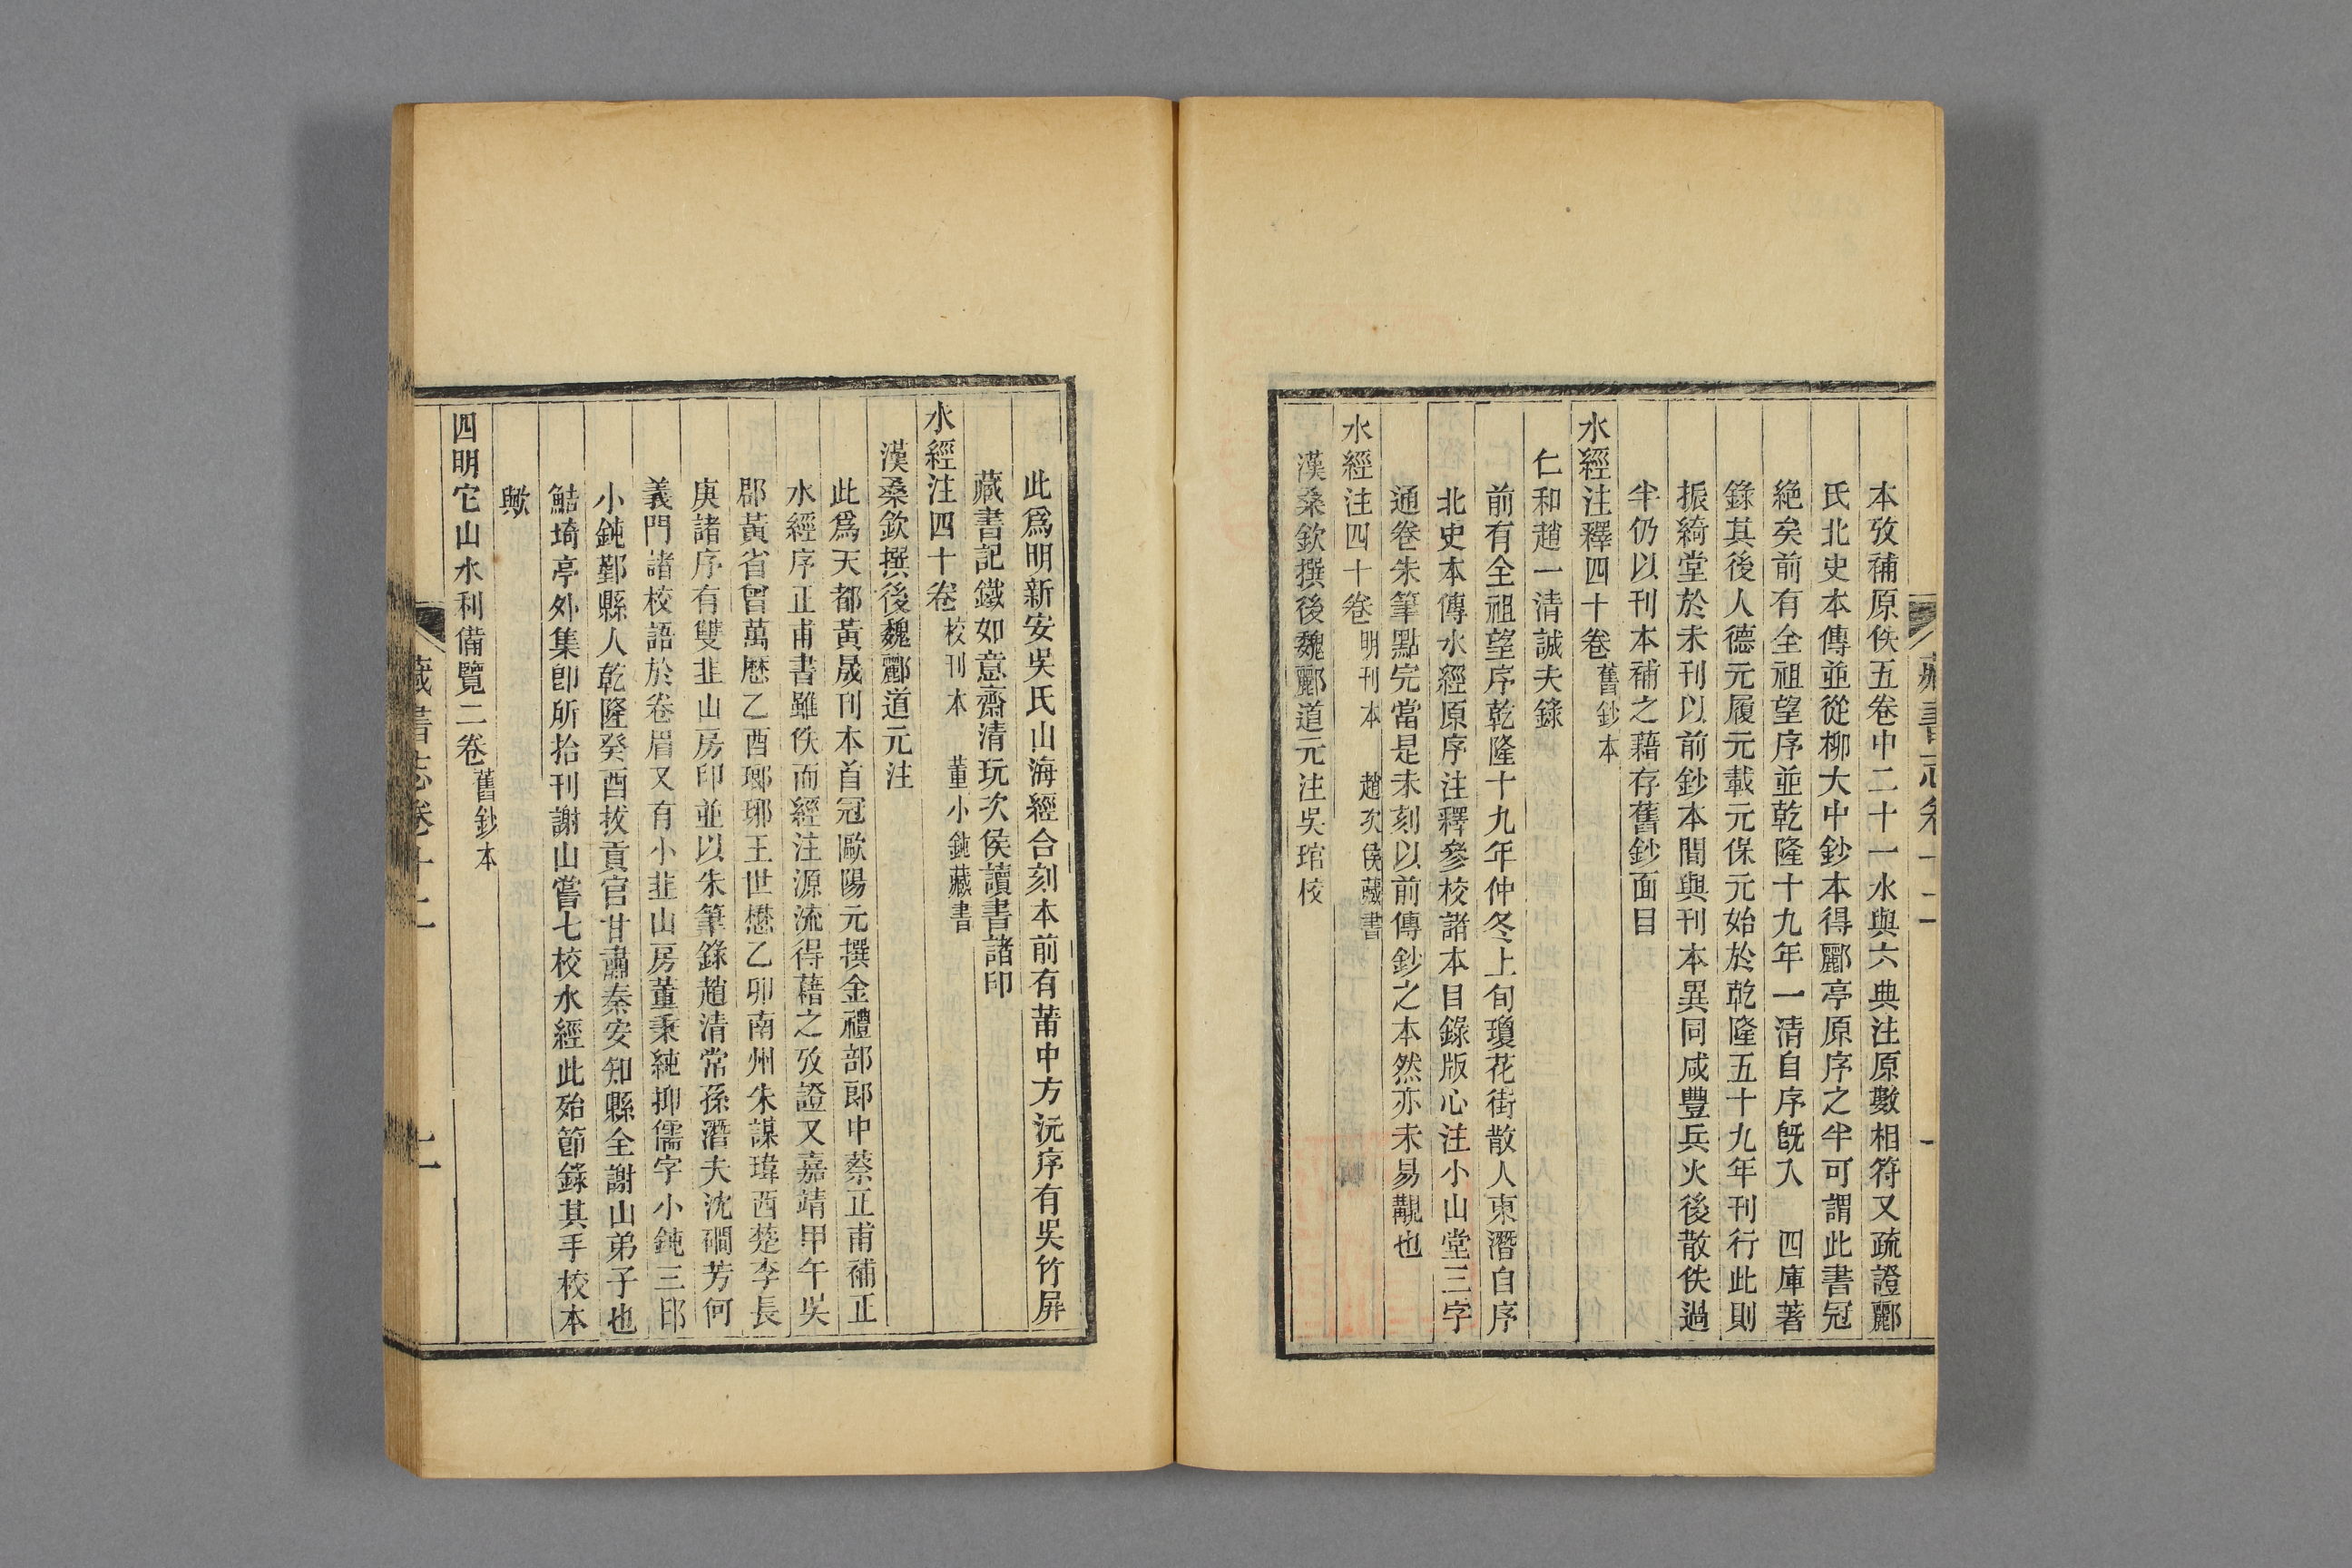 本攷補原佚五卷中二十一水與六典注原數相符又疏證酈
氏北史本傳並從柳大中鈔本得酈亭原序之半可謂此書冠
絶矣前有全祖望序並乾隆十九年一清自序旣入　四庫著
錄其後人德元履元載元保元始於乾隆五十九年刊行此則
振綺堂於未刊以前鈔本間與刊本異同咸豐兵火後散佚過
半仍以刊本補之藉存舊鈔面目
水經注釋四十卷舊鈔本
仁和趙一清誠夫錄
前有全祖望序乾隆十九年仲冬上旬瓊花街散人東潛自序
北史本傳水經原序注釋參校諸本目錄版心注小山堂三字
通卷朱筆點完當是未刻以前傳鈔之本然亦未易觀也
水經注四十卷明刊本　趙次侯藏書
漢桑欽撰後魏酈道元注吳琯校
此爲明新安吳氏山海經合刻本前有莆中方沆序有吳竹屏
藏書記鐵如意齋清玩次侯讀書諸印
水經注四十卷校刊本　董小鈍藏書
漢桑欽撰後魏酈道元注
此爲天都黃晟刊本首冠歐陽元撰金禮部郎中蔡正甫補正
水經序正甫書雖佚而經注源流得藉之攷證又嘉靖甲午吳
郡黃省曾萬歷乙酉瑯琊王世懋乙卯南州朱謀㙔西楚李長
庚諸序有雙韭山房印並以朱筆錄趙清常孫潛夫沈礀芳何
義門諸校語於卷眉又有小韭山房董秉純抑儒字小鈍三印
小鈍鄞縣人乾隆癸酉拔貢官甘肅秦安知縣全謝山弟子也
鮚埼亭外集卽所拾刊謝山嘗七校水經此殆節錄其手校本
歟
四明它山水利備覽二卷舊鈔本
藏書志卷十二